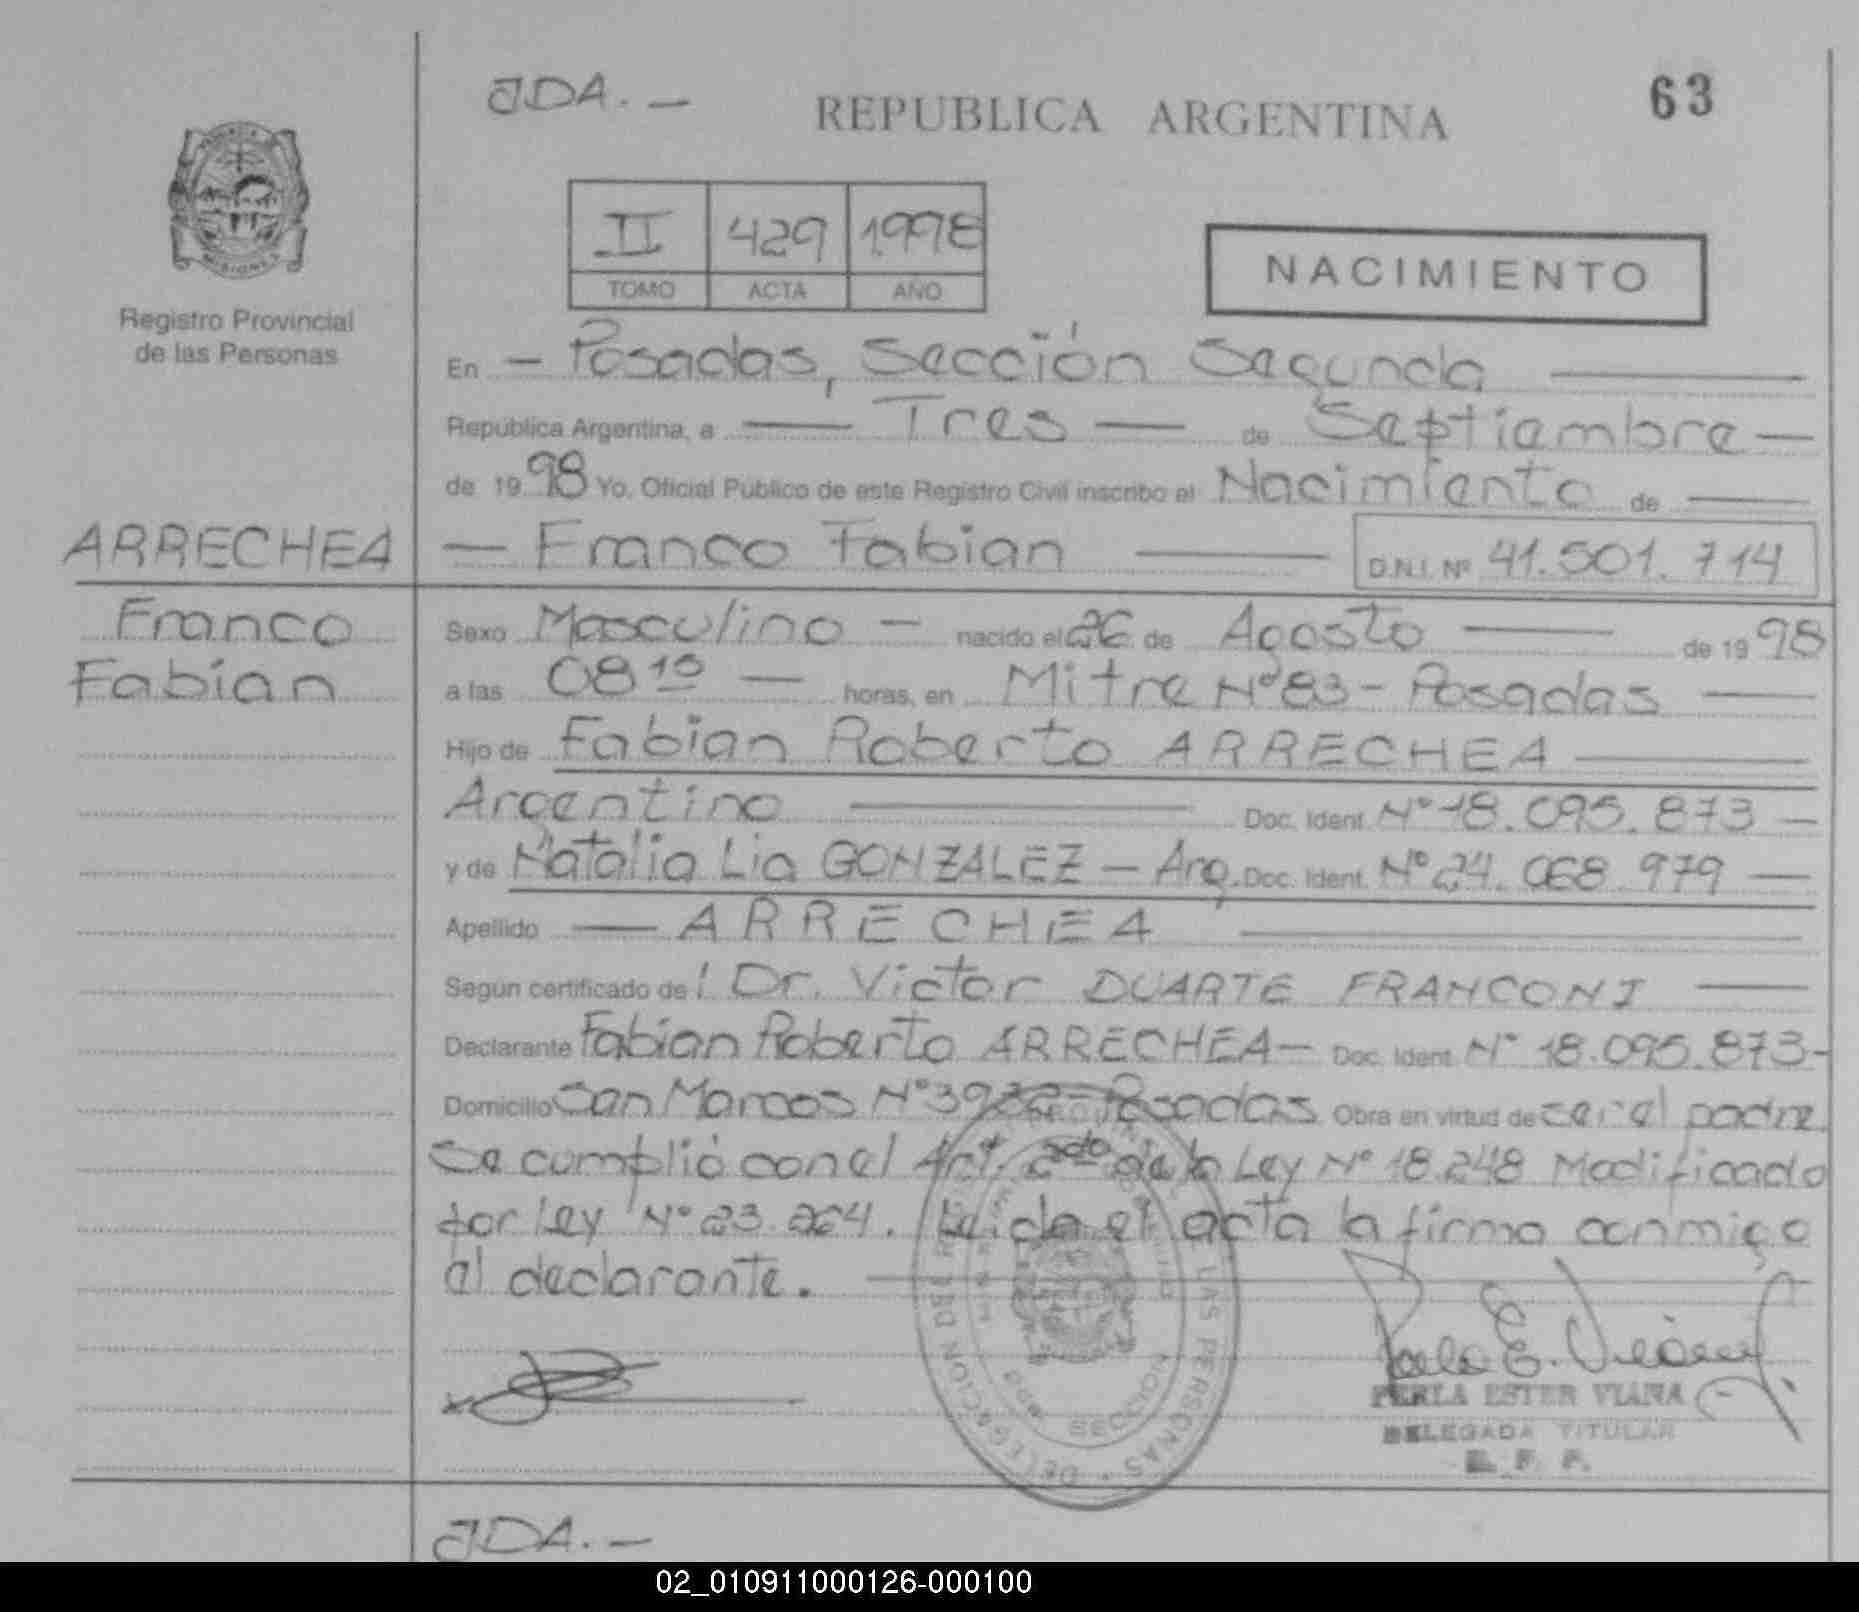 JDA. -
REPUBLICA ARGENTINA
63
II 429 1.998
TOMO ACTA AÑO
NACIMIENTO
MISIONES
Registro Provincial
de las Personas
En - Posadas, Sección Segunda
República Argentina, a Tres de Septiembre
de 1998 Yo, Oficial Público de este Registro Civil inscribo el Nacimiento de
ARRECHEA - Franco Fabian D.N.I. Nº 41.501.714
Franco Sexo Masculino - nacido el 26 de Agosto de 1998
Fabian a las 08 15 - horas, en Mitre Nº 83 - Posadas
Hijo de Fabian Roberto ARRECHEA
Argentino Doc. Ident. Nº 18.095.873 -
y de Natalia Lia GONZALEZ - Arg. Doc. Ident. Nº 24.068.979 -
Apellido ARRECHEA
Según certificado del Dr. Victor DUARTE FRANCONI
Declarante Fabian Roberto ARRECHEA - Doc. Ident. Nº 18.095.873 -
Domicilio San Marcos Nº Posadas Obra en virtud de ser el padre
Se cumplió con el Art. 2do de la Ley Nº 18.248 Modificado
por Ley Nº 23.264. Leida el acta la firma conmigo
el declarante.
DELEGACION DEL LAS PERSONAS
PERLA ESTER VIANA
DELEGADA TITULAR
R. P. P.
JDA. -
02_010911000126-000100